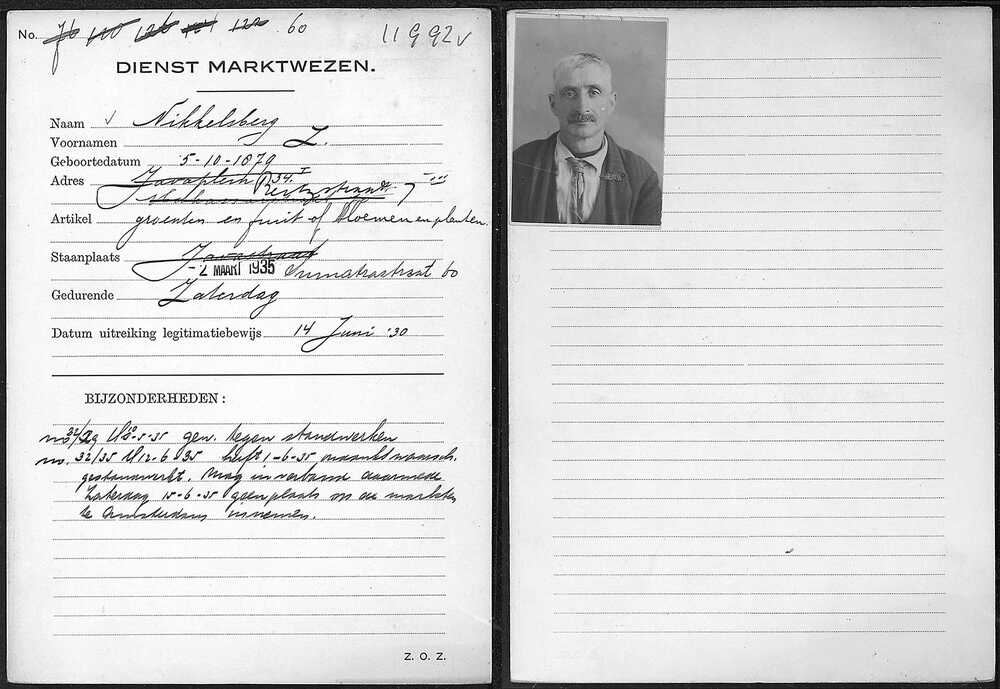 No. 76 110 126 121 122 60 11992v
DIENST MARKTWEZEN.
Naam v Nikkelsberg
Voornamen Z.
Geboortedatum 5-10-1879
Adres Javaplein 34 I
Reitzstraat 7
Artikel groenten en fruit of bloemen en planten.
Staanplaats Javastraat
-2 MAART 1935 Sumatrastraat 60
Gedurende Zaterdag
Datum uitreiking legitimatiebewijs 14 Juni '30
BIJZONDERHEDEN:
no 32/29 5-35 gew. tegen standwerken
no. 32/35 M 12-6-35 heeft 1-6-35 ondanks waarsch.
gestandwerkt. Mag in verband daarmede
Zaterdag 15-6-35 geen plaats op de markten
te Amsterdam innemen.
Z. O. Z.